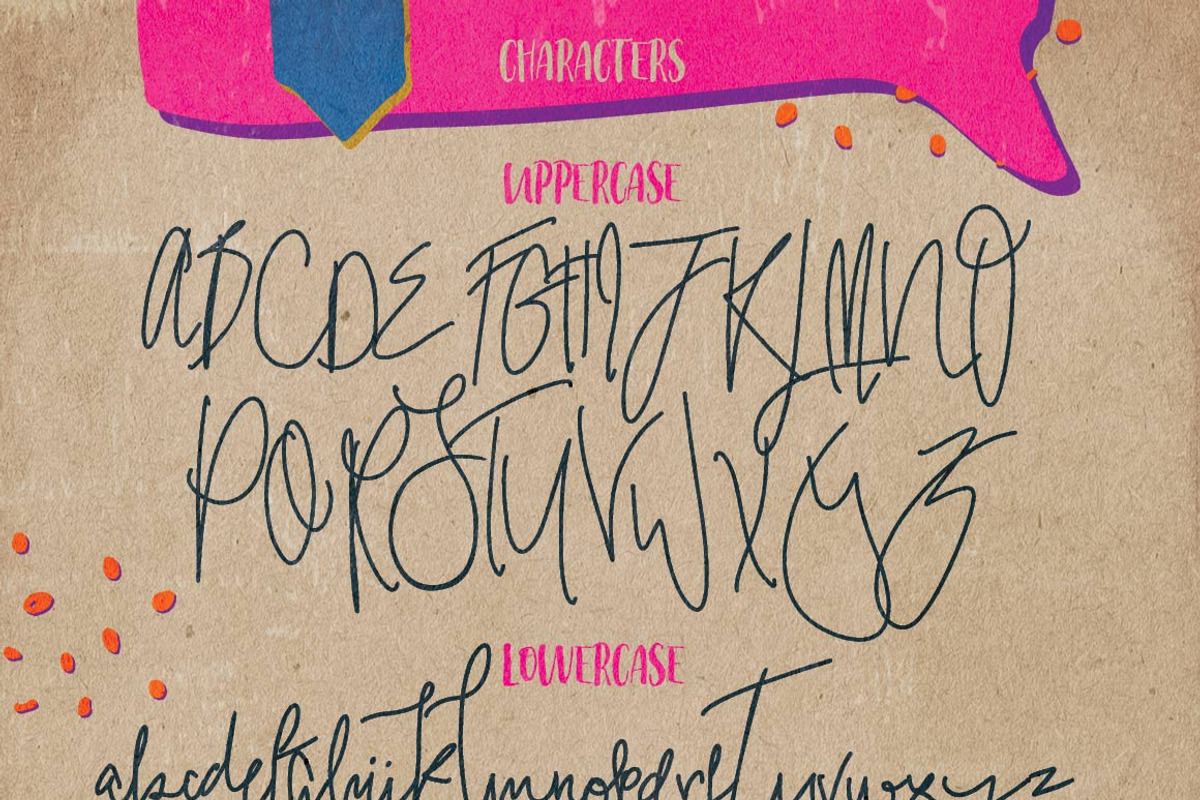 CHARACTERS
UPPERCASE
ABCDEFGHIJKLMNO
PQRSTUVWXYZ
LOWERCASE
abcdefghijklmnopqrstuvwxyz